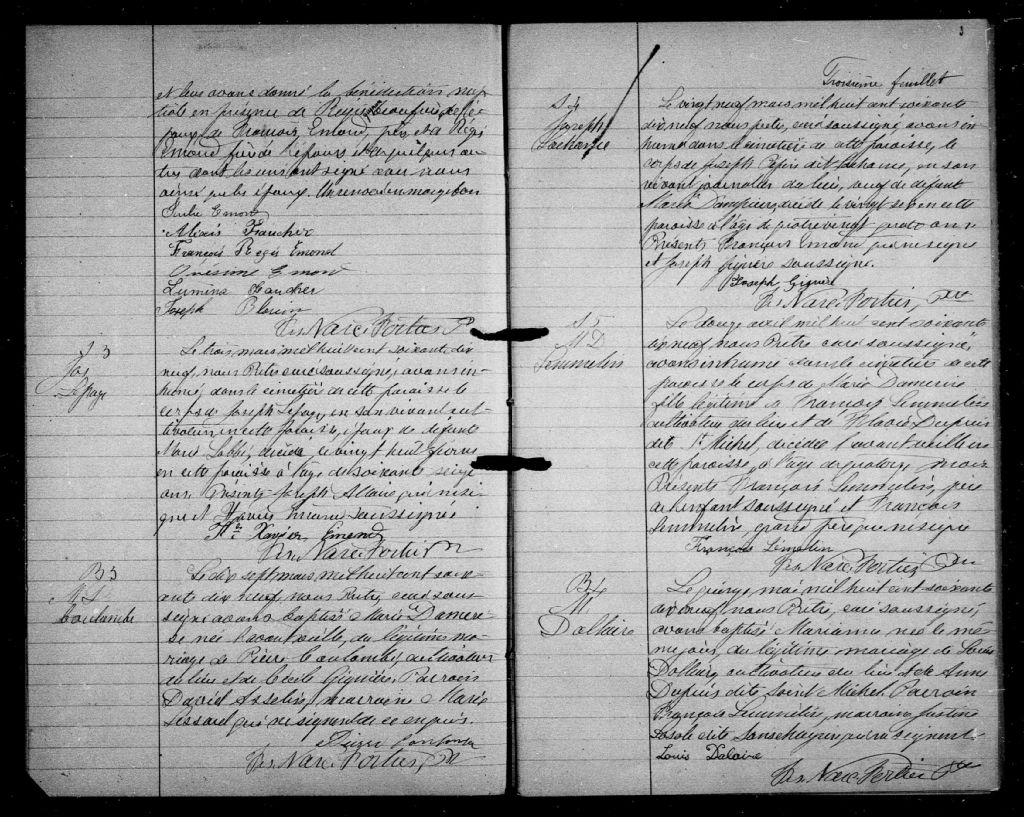 et leur avons donné la bénédiction nup-
tiale en présence de Régis
Emond, père et de Régis
Emond frère de l'épouse et de quelques au-
tres dont les uns ont signé avec nous
ainsi que les époux. Un renvoi en marge bon
Julie Emond
Alexis Faucher
François Régis Emond
Onésime Emond
Lumina Faucher
Joseph Blouin
Frs Narc. Fortier Ptre
S 3
Jos
Lepage
Le trois mars mil huit cent soixante dix
neuf, nous Prêtre curé soussigné, avons in-
humé, dans le cimetière de cette paroisse le
corps de Joseph Lepage, en son vivant cul-
tivateur en cette paroisse, époux de défunte
Marie Labbé, décédé le vingt huit février
en cette paroisse à l'age de soixante seize
ans. Présents Joseph Allaire qui ne si-
gne et Xavier Emond soussigné
Frs Xavier Emond
Frs Narc. Fortier Ptre
B 3
M L
Coulombe
Le dix sept mars mil huit cent soix-
ante dix neuf, nous Prêtre, curé sous-
signé avons baptisé Marie
née l'avant veille, du légitime ma-
riage de Pierre Coulombe, cultivateur
du lieu et de Cécile Giguère. Parrain
David Asselin, marraine Marie
Lessard qui ne signent de ce enquis.
Pierre
Frs Narc. Fortier, Ptre
3
Troisième feuillet
S 4
Joseph
Lachance
Le vingt neuf mars mil huit cent soixante
dix neuf nous prêtre, curé soussigné, avons in-
humé dans le cimetière de cette paroisse, le
corps de Joseph Pepin dit Lachance, en son
vivant journalier du lieu, veuf de défunte
Marie Dampierre, décédé le vingt sept en cette
paroisse à l'age de quatre vingt quatre ans.
Présents François Emond qui ne signe
et Joseph Giguère soussigné.
Joseph Giguère
Frs Narc. Fortier, Ptre
S 5
M D
Lemmelin
Le douze avril mil huit cent soixante
dix neuf, nous Prêtre curé soussigné,
avons inhumé dans le cimetière de cette
paroisse le corps de Marie Damerise
fille légitime de François Lemmelin
cultivateur du lieu et de Flavie Dupuis
dit St Michel, décédée l'avant veille en
cette paroisse, à l'age de quatorze mois
Présents François Lemmelin, père
de l'enfant soussigné et François
Lemmelin, grand père qui ne signe
François Lemelin
Frs Narc. Fortier Ptre
B 4
M
Dallaire
Le quinze mai mil huit cent soixante
dix neuf, nous Prêtre, curé soussigné,
avons baptisé Marianne née le mê-
me jour, du légitime mariage de Louis
Dallaire cultivateur du lieu et de Anne
Dupuis dite Saint Michel. Parrain
François Lemmelin, marraine Justine
dite qui ne signent.
Louis Dalaire
Frs Narc. Fortier Ptre